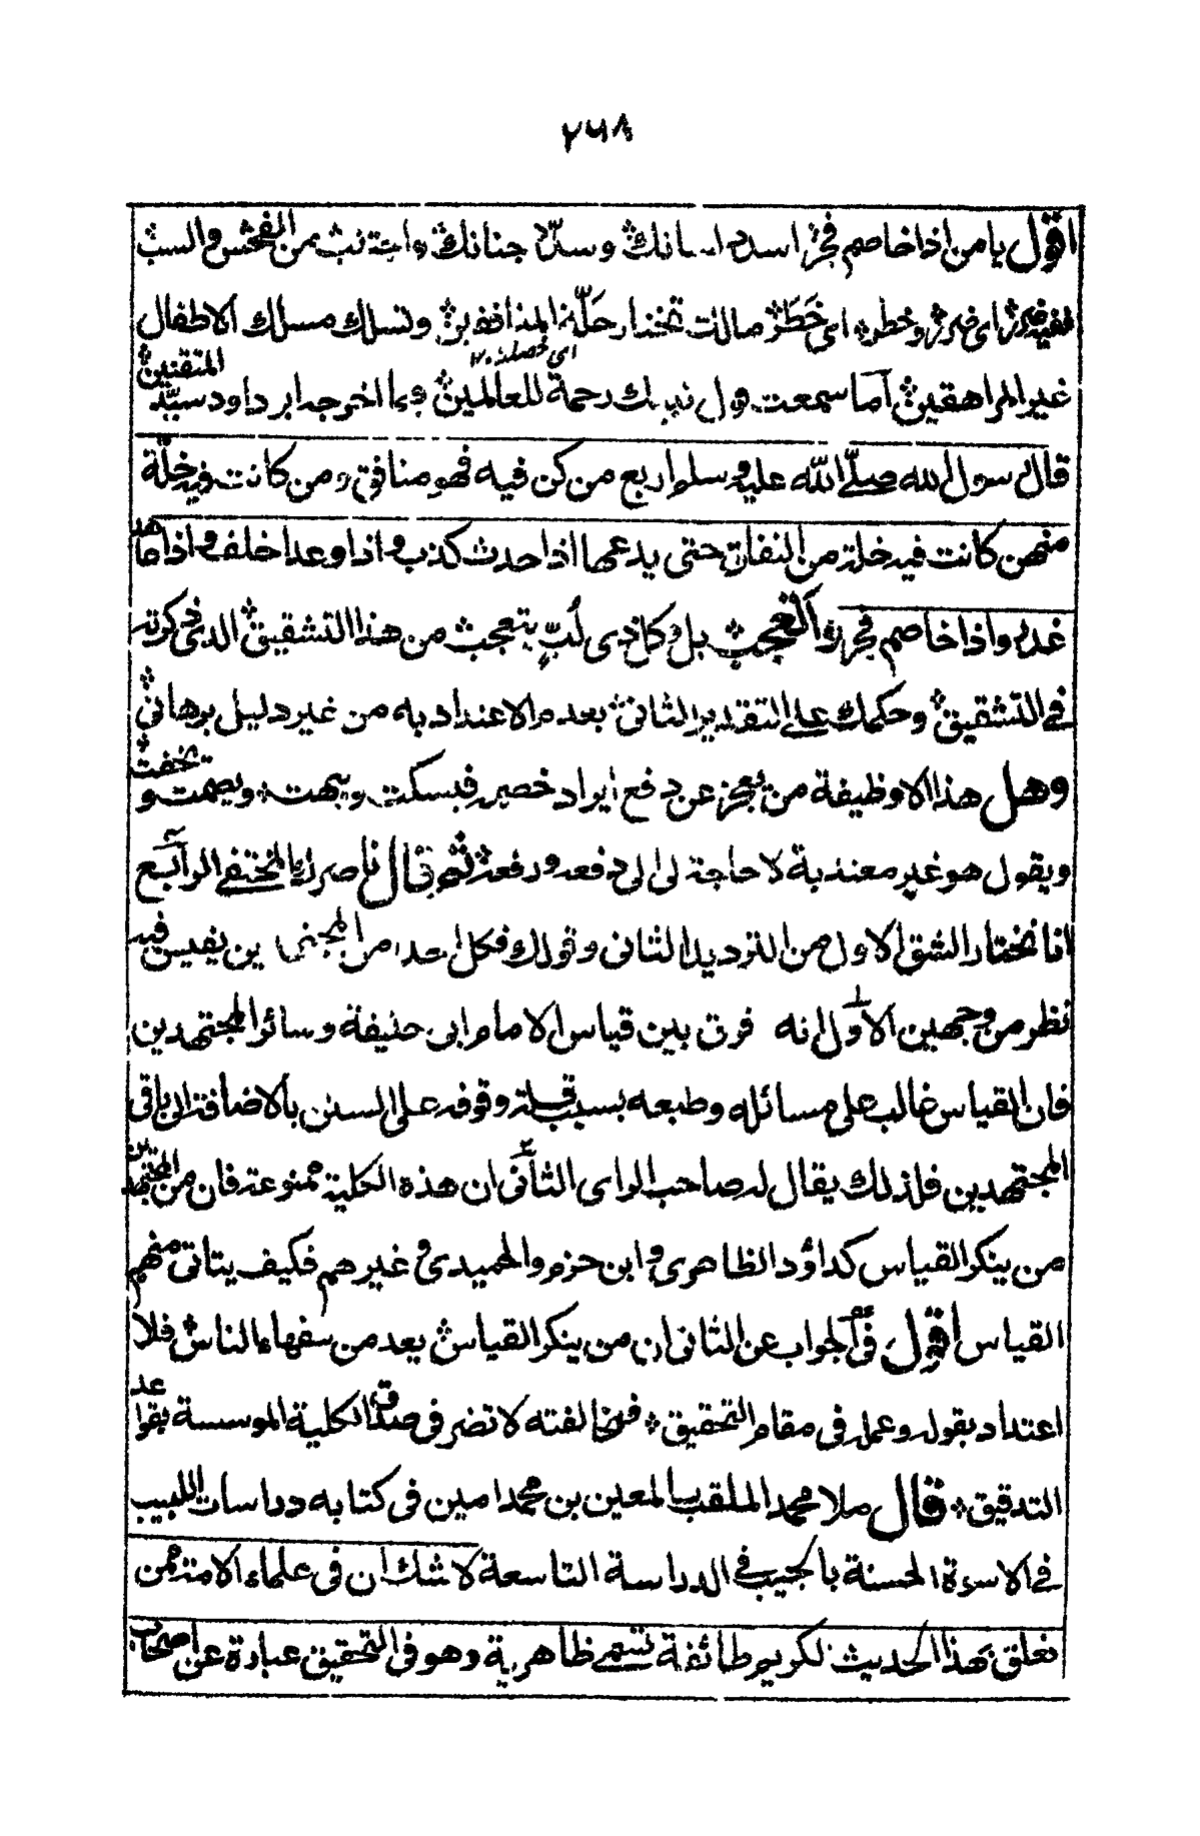 ٢٦٨
اقول يا من اذا خاصم فجر اسدد لسانك وسدد جنانك واجتنب من الفحش والسب
ففيه ضرر اى ضرر وخطر اى خَطَر مالك تختار حلة المنافقين وتسلك مسلك الاطفال
اى خصلة ١٢
غير المراهقين آما سمعت قول نبيك رحمة للعالمين وما اخرجه ابو داود سيد المتقنين
قال رسول الله صلى الله عليه وسلم اربع من كن فيه فهو منافق ومن كانت فيه خلة
منهن كانت فيه خلة من النفاق حتى يدعها اذا حدث كذب واذا وعد اخلف واذا عاهد
غدر واذا خاصم فجر والعجب بل كل ذى لُبّ يتعجب من هذا التشقيق الذى ذكرته
فى التشقيق وحكمك على التقدير الثانى بعدم الاعتداد به من غير دليل برهانى
وهل هذا الا وظيفة من يعجز عن دفع ايراد خصمه فيسكت ويبهت ويصمت ويخفت
ويقول هو غير معتد به لا حاجة لى الى دفعه ورفعه ثم قال ناصرك المختفى الرابع
انا نختار الشق الاول من الترديد الثانى وقولك فكل احد من المجتهدين يقيس فيه
نظر من وجهين الاول انه فرق بين قياس الامام ابى حنيفة وسائر المجتهدين
فان القياس غالب على مسائله وطبعه بسبب قلة وقوفه على السنن بالاضافة الى باقى
المجتهدين فلذلك يقال له صاحب الراى الثانى ان هذه الكلية ممنوعة فان من المجتهدين
من ينكر القياس كداؤد الظاهرى وابن حزم والحميدى وغيرهم فكيف يتاتى منهم
القياس اقول فى الجواب عن الثانى ان من ينكر القياس يعد من سفهاء الناس فلا
اعتداد بقوله وعمله فى مقام التحقيق فمخالفته لا تضر فى صدق الكلية الموسسة بقواعد
التدقيق قال ملا محمد الملقب بالمعين بن محمد امين فى كتابه دراسات اللبيب
فى الاسوة الحسنة بالحبيب فى الدراسة التاسعة لا شك ان فى علماء الامة ممن
تعلق بهذا الحديث الكريم طائفة تسمى ظاهرية وهو فى التحقيق عبارة عن اصحاب